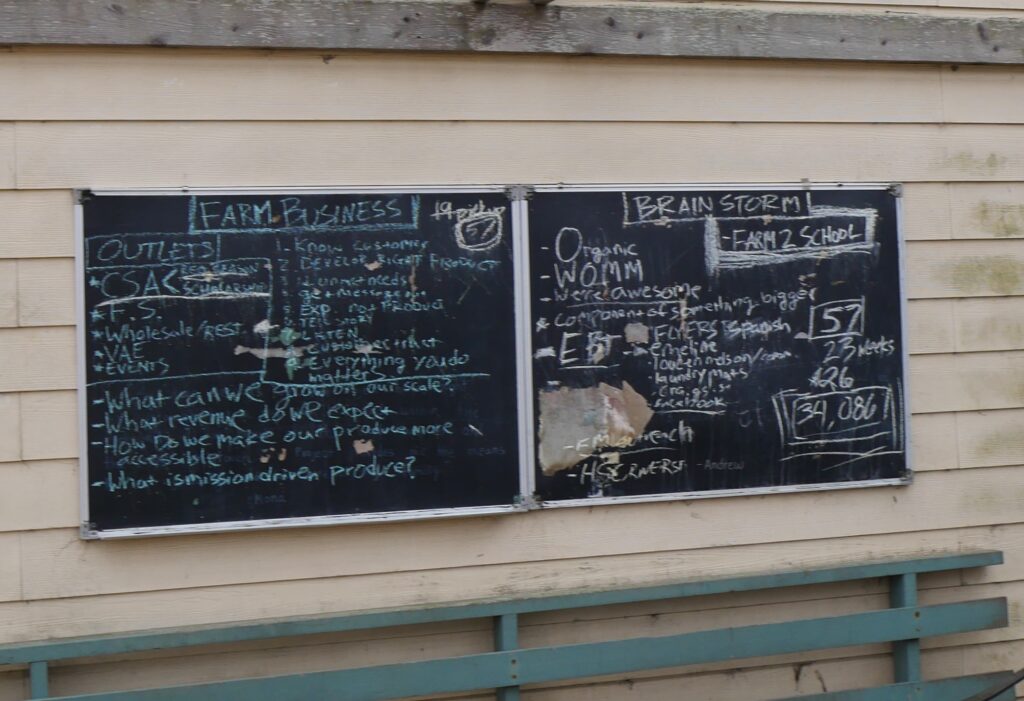 FARM BUSINESS
19 pickup
57
OUTLETS
*CSA< RED SEASON
SCHOLARSHIP
*F.S.
*Wholesale/REST.
*VAE
*EVENTS
1. Know Customer
2. DEVELOP RIGHT PRODUCT
3. id unmet needs
5. EXP. not PRODUCT
TELL STORY
LATEN
Everything you do
matter
-What can we grow on our scale?
-What revenue do we expect
-How Do we make our produce more
accessible
-What is mission driven produce?
Kona
BRAINSTORM
-FARM 2 SCHOOL
-Organic
-WOMM
-We're awesome
*component of something bigger
-EBT
-FLYERS Spanish
emeline
laundry mats
Craigs
Facebook
57
23 weeks
$26
34,086
-EM outreach
-HSC
-Andrew